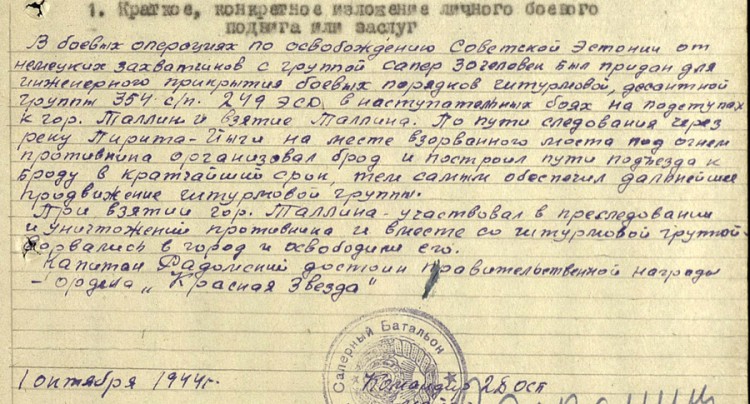 1. Краткое, конкретное изложение личного боевого
подвига или заслуг
В боевых операциях по освобождению Советской Эстонии от
немецких захватчиков с группой сапер 30 человек был придан для
инженерного прикрытия боевых порядков штурмовой, десантной
группы 354 с/п. 249 ЭСД в наступательных боях на подступах
к гор. Таллин и взятие Таллина. По пути следования через
реку Пирита-Йыги на месте взорванного моста под огнем
противника организовал брод и построил пути подъезда к
броду в кратчайший срок, тем самым обеспечил дальнейшее
продвижение штурмовой группы.
При взятии гор. Таллина - участвовал в преследовании
и уничтожении противника и вместе со штурмовой группой
ворвались в город и освободили его.
Капитан Радомский достоин правительственной награды
- ордена „Красная Звезда"
Саперный Батальон
1 октября 1944г.
Командир